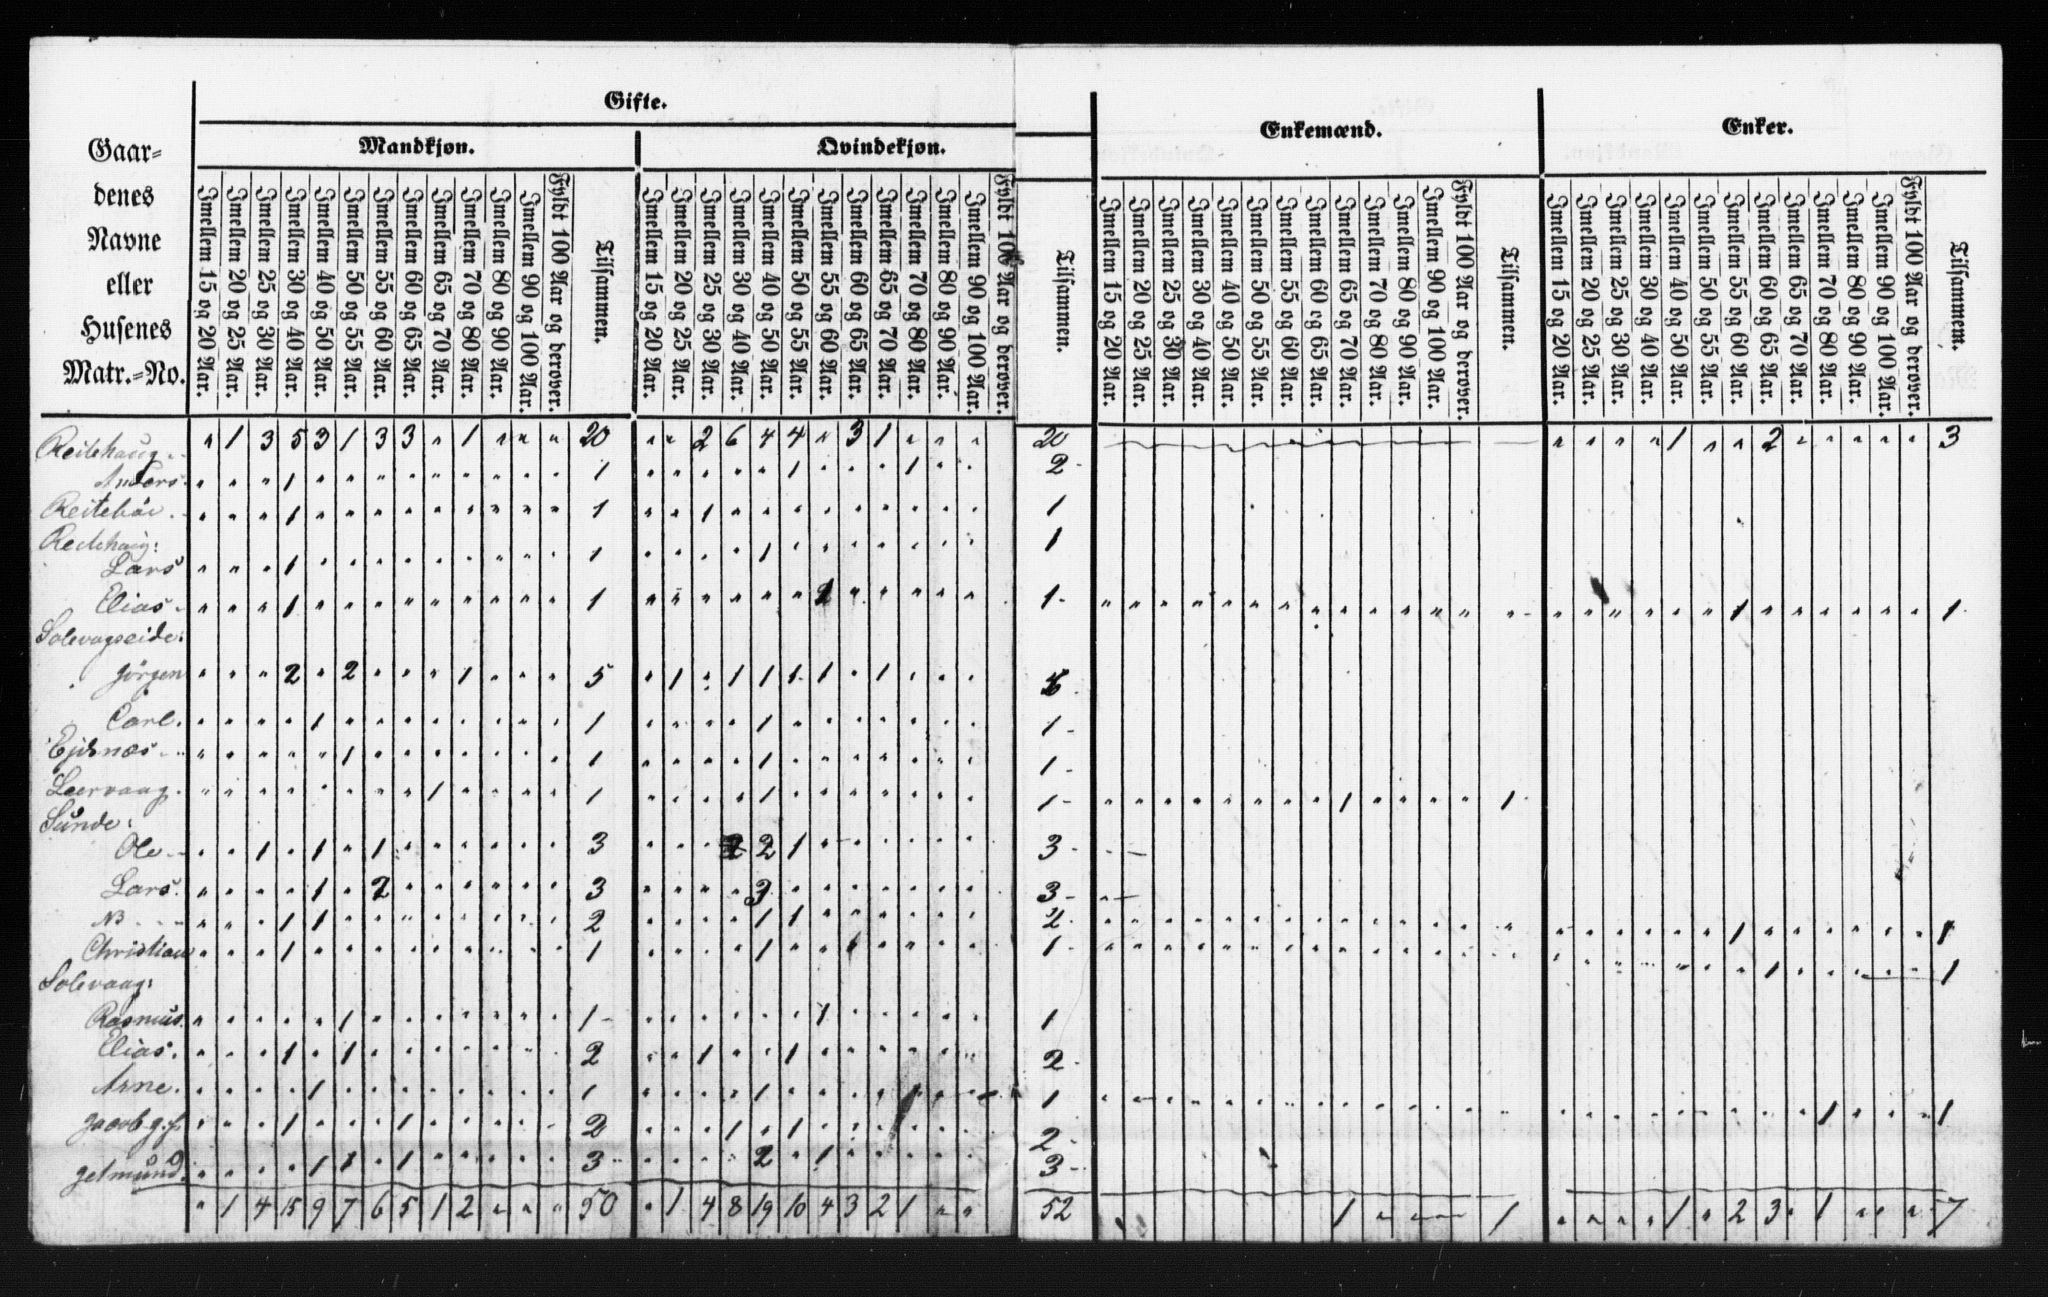 Gifte.
Enkemænd.
Enker.
Mandkjøn.
Qvindekjøn.
Gaar=
denes
Navne
eller
Husenes
Matr.=No.
Imellem 15 og 20 Aar.
Imellem 20 og 25 Aar.
Imellem 25 og 30 Aar.
Imellem 30 og 40 Aar.
Imellem 40 og 50 Aar.
Imellem 50 og 55 Aar.
Imellem 55 og 60 Aar.
Imellem 60 og 65 Aar.
Imellem 65 og 70 Aar.
Imellem 70 og 80 Aar.
Imellem 80 og 90 Aar.
Imellem 90 og 100 Aar.
Fyldt 100 Aar og derover.
Tilsammen.
Imellem 15 og 20 Aar.
Imellem 20 og 25 Aar.
Imellem 25 og 30 Aar.
Imellem 30 og 40 Aar.
Imellem 40 og 50 Aar.
Imellem 50 og 55 Aar.
Imellem 55 og 60 Aar.
Imellem 60 og 65 Aar.
Imellem 65 og 70 Aar.
Imellem 70 og 80 Aar.
Imellem 80 og 90 Aar.
Imellem 90 og 100 Aar.
Fyldt 100 Aar og derover.
Tilsammen.
Imellem 15 og 20 Aar.
Imellem 20 og 25 Aar.
Imellem 25 og 30 Aar.
Imellem 30 og 40 Aar.
Imellem 40 og 50 Aar.
Imellem 50 og 55 Aar.
Imellem 55 og 60 Aar.
Imellem 60 og 65 Aar.
Imellem 65 og 70 Aar.
Imellem 70 og 80 Aar.
Imellem 80 og 90 Aar.
Imellem 90 og 100 Aar.
Fyldt 100 Aar og derover.
Tilsammen.
Imellem 15 og 20 Aar.
Imellem 20 og 25 Aar.
Imellem 25 og 30 Aar.
Imellem 30 og 40 Aar.
Imellem 40 og 50 Aar.
Imellem 50 og 55 Aar.
Imellem 55 og 60 Aar.
Imellem 60 og 65 Aar.
Imellem 65 og 70 Aar.
Imellem 70 og 80 Aar.
Imellem 80 og 90 Aar.
Imellem 90 og 100 Aar.
Fyldt 100 Aar og derover.
Tilsammen.
Reitehaug. " 1 3 5 3 1 3 3 " 1 " " " 20 " " 2 6 4 4 " 3 1 " " " 20 " " " " 1 " " 2 " " " " " 3
Anders. " " " 1 " " " " " " " " " 1 " " " " " 1 " " " 1 " " 2
Reitebäi. " " " 1 " " " " " " " " " 1 " " 1 " " " " " " " " " 1
Reitehaug:
Lars " " " 1 " " " " " " " " " 1 " " " " 1 " " " " " " " 1
Elias. " " " 1 " " " " " " " " " 1 " " " " " " 1 " " " " " 1 " " " " " " " " " " " " " " " " " " " " 1 " " " " " " 1
Solevagseide:
Jørgen " " " 2 " 2 " " " 1 " " " 5 " 1 " 1 1 1 1 " 1 " " "
Carl. " " " " 1 " " " " " " " " 1 " " " " 1 " " " " " " " 1
Ejdsnæs " " " " " 1 " " " " " " " 1 " " " " 1 " " " " " " " 1
Leervaag. " " " " " " " " 1 " " " " 1 " " " " 1 " " " " " " " 1 " " " " " " " " 1 " " " " 1
Sunde:
Ole " " 1 " 1 " 1 " " " " " " 3 " " " 2 1 " " " " " " 3
Lars. " " " " 1 " 2 " " " " " " 3 " " " " 3 " " " " " " " 3
NB " " " 1 1 " " " " " " " " 2 " " " " 1 1 " " " " " " 2 " " " " " " " " " " " " " " " " " " " " 1 " " " " " " 1
Christian " " " 1 " " " " " " " " " 1 " " " " 1 " " " " " " 1 " " " " " " " " " " " " " " " " " " " " " 1 " " " " 1
Solevaag:
Rasmus. " " " " " 1 " " " " " " " 1 " " " " " " 1 " " " " " 1
Elias. " " " 1 " 1 " " " " " " " 2 " " 1 " " 1 " " " " " " 2
Arne. " " " " 1 " " " " " " " " 1 " " " " 1 " " " " 1 " " 1 " " " " " " " " " " " " " " " " " " " " " " " 1 " " " 1
Jacob g.f. " " " 1 " " " 1 " " " " " 2 " " " 1 " 1 " " " " " " 2
Jetmund. " " " " 1 1 " 1 " " " " " 3 " " " " 2 " 1 " " " " " 3
" 1 4 15 9 7 6 5 1 2 " " " 50 " 1 4 8 19 10 4 3 2 1 " " 52 1 " " " 1 " " " " 1 " 2 3 " 1 " " " 7